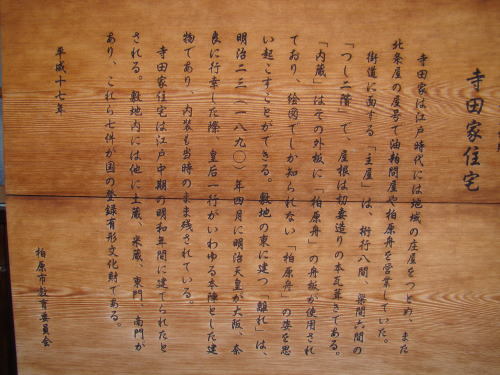 寺田家住宅
寺田家は江戸時代には地域の庄屋をつとめ、また
北条屋の屋号で油粕問屋や柏原舟を営業していた。
街道に面する「主屋」は、桁行八間、梁間六間の
「つし二階」で、屋根は切妻造りの本瓦葺きである。
「内蔵」はその外板に「柏原舟」の舟板が使用され
ており、絵図でしか知られない「柏原舟」の姿を思
い起こすことができる。敷地の東に建つ「離れ」は、
明治二三（一八九〇）年四月に明治天皇が大阪、奈
良に行幸した際、皇后一行がいわゆる本陣とした建
物であり、内装も当時のまま残されている。
寺田家住宅は江戸中期の明和年間に建てられたと
される。敷地内には他に土蔵、米蔵、東門、南門が
あり、これら七件が国の登録有形文化財である。
平成十七年
柏原市教育委員会